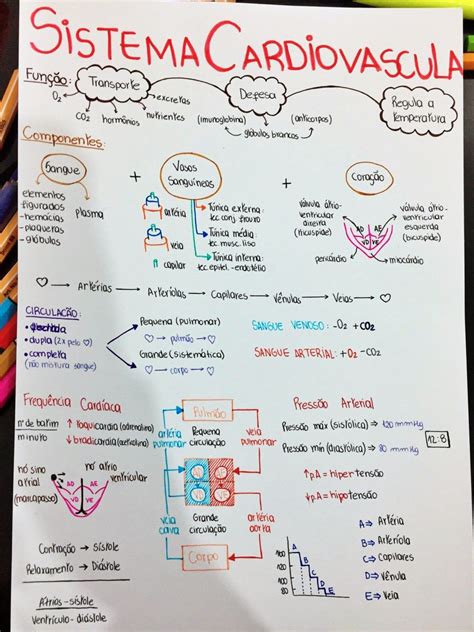 SISTEMA CARDIOVASCULA
Função:
Transporte
Defesa
Regula a
temperatura
O₂
CO₂
hormônios
nutrientes
excretas
(imunoglobina)
(anticorpos)
glóbulos brancos
Componentes:
Sangue
+
Vasos
Sanguíneos
+
Coração
elementos
figurados
-hemácias
-plaquetas
-glóbulos
plasma
artéria
veia
capilar
Túnica externa:
tec conj frouxo
Túnica média:
tec musc. liso
Túnica interna:
tec epitel. -endotélio
válvula átrio-
ventricular
direita
(tricuspide)
válvula átrio-
ventricular
esquerda
(bicuspide)
AD AE
VD VE
pericárdio
miocárdio
♡ → Artérias → Arteríolas → Capilares → Vênulas → Veias → ♡
CIRCULAÇÃO:
• dupla (2x pelo ♡)
• completa
(não mistura sangue)
Pequena (pulmonar)
♡ → pulmão → ♡
Grande (sistemática)
♡ → corpo → ♡
SANGUE VENOSO: -O₂ +CO₂
SANGUE ARTERIAL: +O₂ -CO₂
Frequência Cardíaca
nº de batim
minuto
↑ taquicardia (adrenalina)
↓ bradicardia (acetilcolina)
nó sino
atrial
(marcapasso)
nó atrio
ventricular
AD AE
VD VE
Contração → Sístole
Relaxamento → Diástole
Átrios - sístole
Ventrículo - diástole
Pulmão
artéria
pulmonar
Pequena
circulação
veia
pulmonar
AD AE
VD VE
veia
cava
Grande
circulação
artéria
aorta
Corpo
Pressão Arterial
Pressão máx (sistólica) → 120 mmHg
Pressão mín (diastólica) → 80 mmHg
12:8
↑pA = hipertensão
↓pA = hipotensão
100
80
A
B
C
D
E
A ⇒ Artéria
B ⇒ Arteríola
C ⇒ Capilares
D ⇒ Vênula
E ⇒ Veia